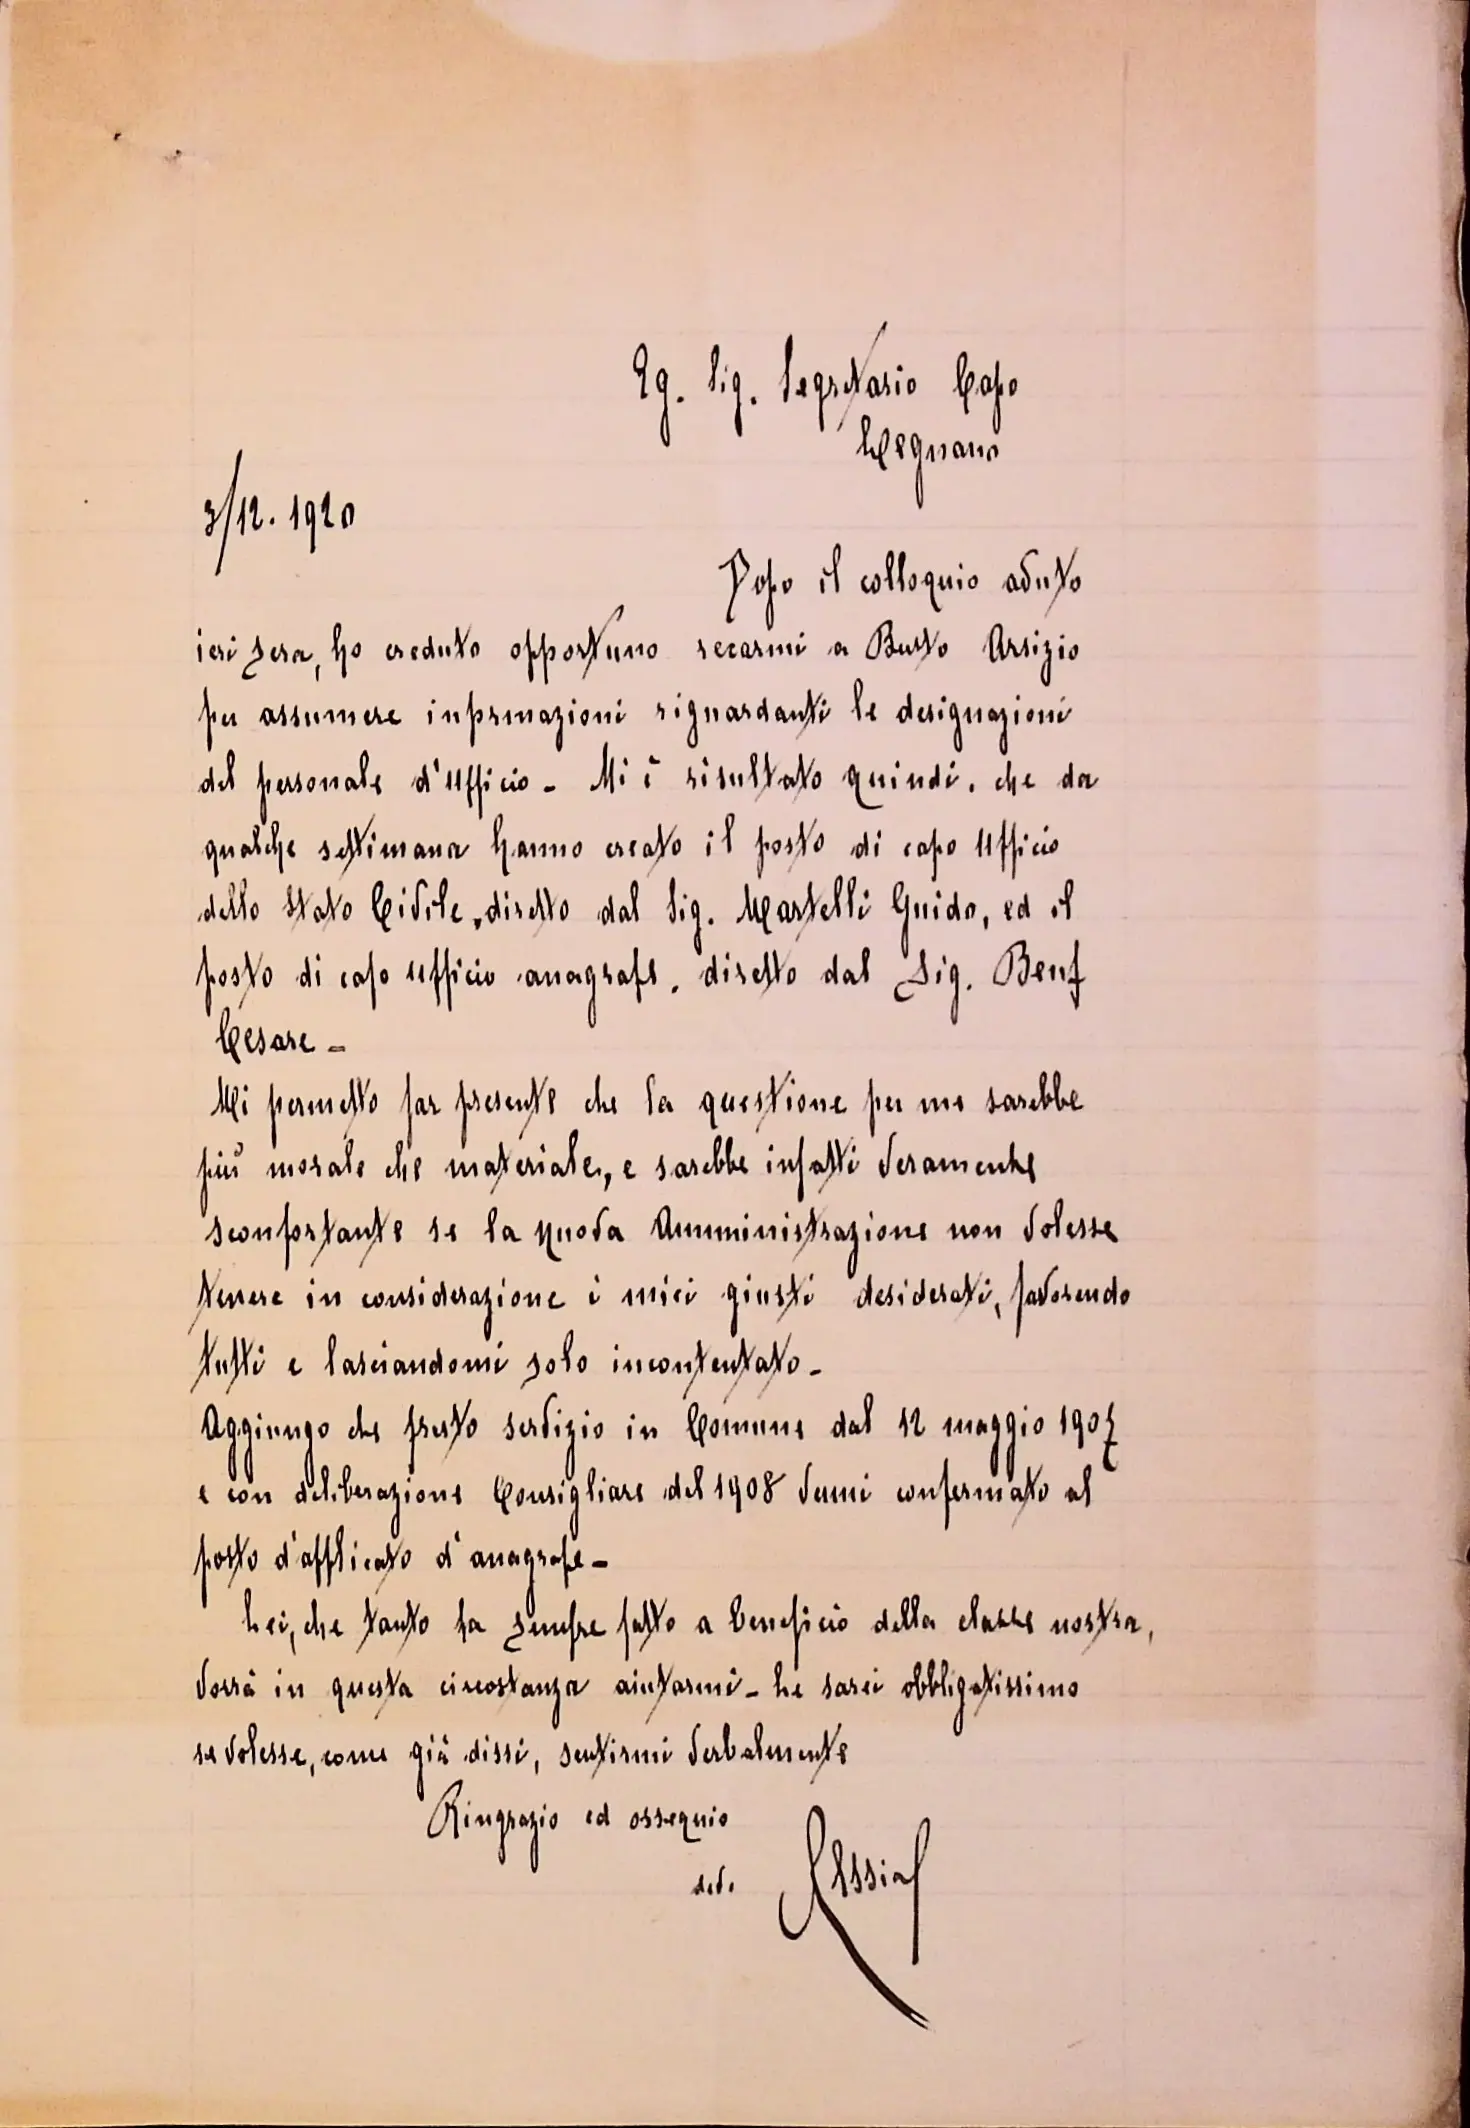 Eg. Sig. Segretario Capo
Legnano
3/12. 1920
Dopo il colloquio avuto
ieri sera, ho creduto opportuno recarmi a Busto Arsizio
per assumere informazioni riguardanti le designazioni
del personale d'Ufficio - Mi è risultato quindi, che da
qualche settimana hanno creato il posto di capo Ufficio
dello Stato Civile, diretto dal Sig. Martelli Guido, ed il
posto di capo ufficio anagrafe, diretto dal Sig.
Cesare -
Mi permetto far presente che la questione per me sarebbe
più morale che materiale, e sarebbe infatti veramente
sconfortante se la nuova Amministrazione non volesse
tenere in considerazione i miei giusti desiderati, favorendo
tutti e lasciandomi solo incontentato -
Aggiungo che presto servizio in Comune dal 12 maggio 1907
e con deliberazione Consigliare del 1908 venni confermato al
posto d'applicato d'anagrafe -
Lei, che tanto ha sempre fatto a beneficio della classe nostra,
vorrà in questa circostanza aiutarmi - Le sarei obbligatissimo
se volesse, come già dissi, sentirmi verbalmente
Ringrazio ed ossequio